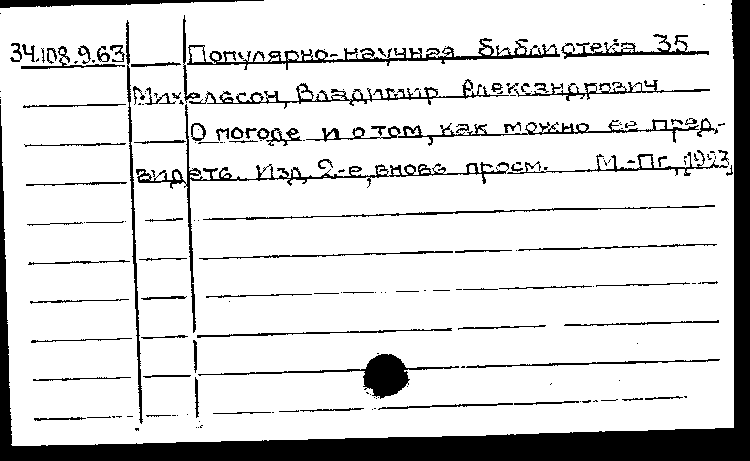 34.108.9.63 Популярно-научная библиотека 35
Михельсон, Владимир Александрович.
О погоде и о том, как можно ее пред-
видеть. Изд. 2-е, вновь просм. М.-Пг., 1923